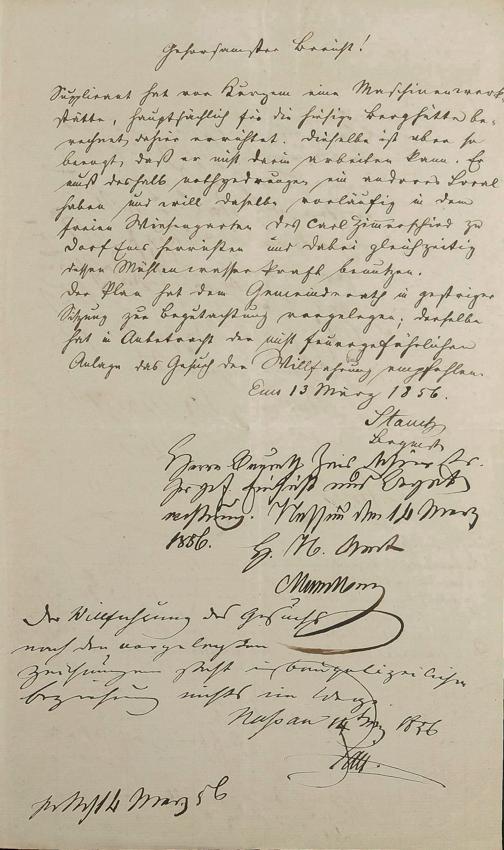 Gehorsamster Bericht!
Supplicant hat vor Kurzem eine Maschinenwerk
stätte, hauptsächlich für die hiesige Berghütte be-
rechnet dahier errichtet. Dieselbe ist aber so
beengt, daß er nicht darin arbeiten kann. Er
muß deshalb nothgedrungen ein anderes Local
haben und will daselbe vorläufig in dem
freien Wiesengarten des Carl Zimerschied zu
Dorf Ems herrichten und dabei gleichzeitig
dessen Mühlenwasserkraft benutzen.
Der Plan hat dem Gemeinderath in gestriger
Sitzung zur Begutachtung vorgelegen; derselbe
hat in Anbetracht der nicht feuergefährlichen
Anlage das Gesuch der Willfahrung empfohlen.
Ems 13 März 1856.
Herrn Baurath Zais
Einsicht und Begut
achtung. Nassau den 14 März
1856. Hz. N. Amt
Der Willfahrung des Gesuchs
nach den vorgelegten
Zeichnungen steht in baupolizeilicher
Beziehung nichts im Wege.
Nassau 14 März 1856
14 März 56